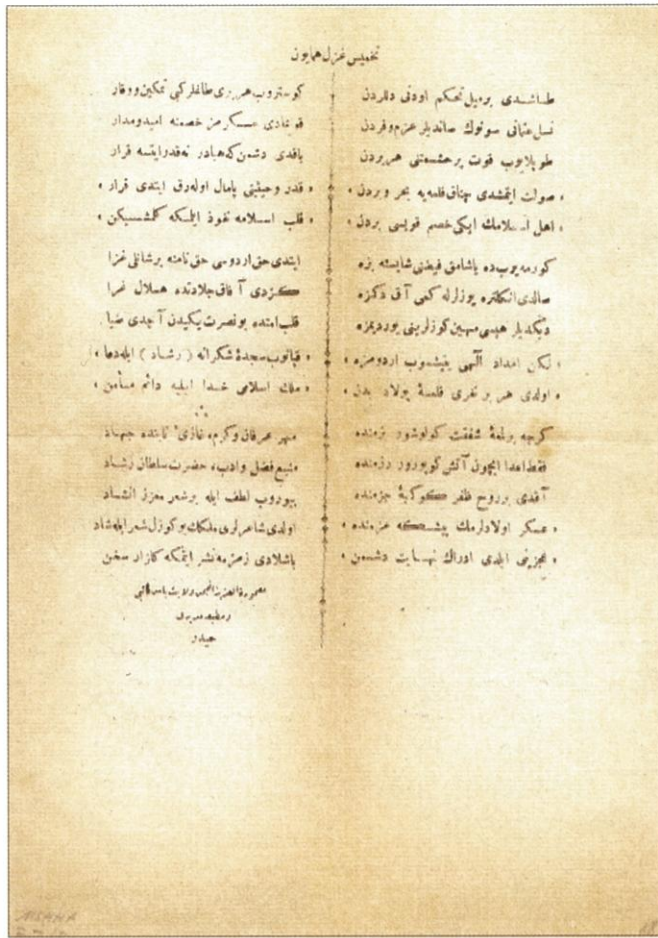 تخميس غزل همايون
طاشدى برميل تحكم اودنى دللردن
نسل عثمانى سونوك صانديلر عزم وفردن
طوپلايوب قوت پرحشمتنى هربردن
« صولت ايتمشدى چناق قلعه‌يه بحر وبردن »
« اهل اسلامك ايكى خصم قويسى بردن »
كورمه‌يوب‌ده ياشامق فيضنى شايسته بزه
صالدى انكلتره يوزلرله كمى آق دكزه
ديكديلر هپسى مهين كوزلرينى يورديمزه
« لكن امداد الٓهى يتيشوب اردومزه »
« اولدى هر بر نفرى قلعۀ پولاد بدن »
كرچه برلمعۀ شفقت كولوشور بزمنده
فقط اعدا ايچون آتش كوپورور رزمنده
آقدى برروح ظفر كوكبۀ جزمنده
« عسكر اولادلرمك پيشكه عزمنده »
« عجزينى ايلدى ادراك نهايت دشمن »
كوستروب هربرى طاغلركبى تمكين ووقار
قومادى عسكرمز خصمنه اميد ومدار
باقدى دشمن كه هبادر نه‌قدر ايتسه قرار
« قدر وحيثيتى پامال اوله‌رق ايتدى فرار »
« قلب اسلامه نفوذ ايلمكه كلمشسيكن »
ايتدى حق اردوسى حق نامنه برشانلى غزا
كزدى آفاق جلادتده هلال غرا
قلب امتده بونصرت يكيدن آچدى ضيا
« قپانوب سجدۀ شكرانه (رشاد) ايله دعا »
« ملك اسلامى خدا ايليه دائم مأمن »
مهر عرفان وكرم، غازئ تابنده جهاد
منبع فضل وادب، حضرت سلطان رشاد
بيوروب لطف ايله برشعر معزز انشاد
اولدى شاعرلرى ملكك بوكوزل شعر ايله شاد
باشلادى زمزمه نشر ايتمكه كلزار سخن
معمورة العزيز انجمن ولايت باشكاتبى
و مطبعه مديرى
حيدر